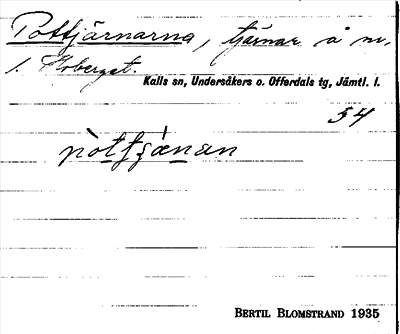 Pottjärnarna, tjärnar å nr,
1. Koberget.
Kalls sn, Undersåkers o. Offerdals tg, Jämtl. l.
54
pòttʃǽnan
BERTIL BLOMSTRAND 1935